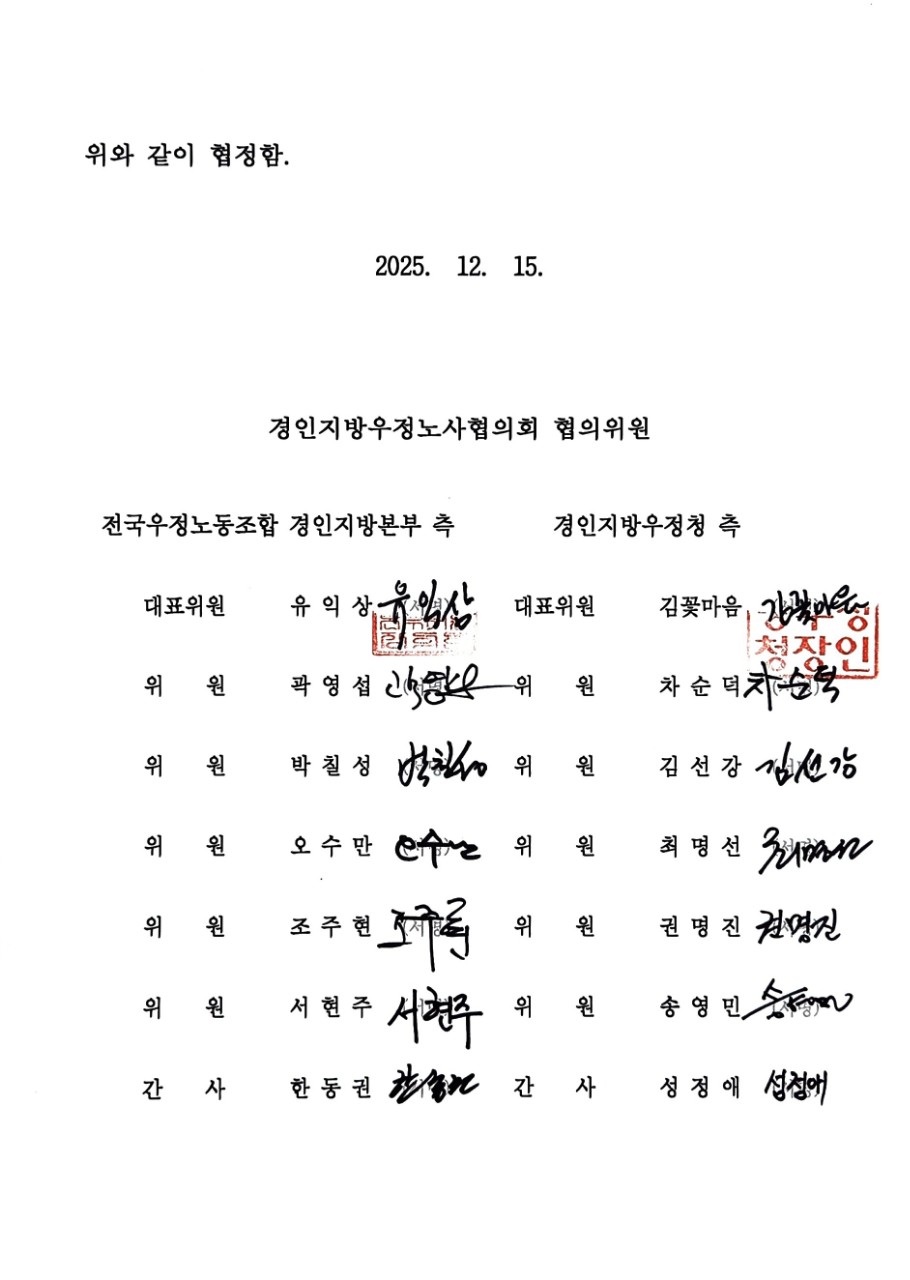 위와 같이 협정함.
2025. 12. 15.
경인지방우정노사협의회 협의위원
전국우정노동조합 경인지방본부 측 경인지방우정청 측
대표위원 유익상 (서명) 유익상 대표위원 김꽃마음 (서명) 김꽃마음
청장인
위 원 곽영섭 (서명) 위 원 차순덕 (서명) 차순덕
위 원 박칠성 (서명) 박칠성 위 원 김선강 (서명) 김선강
위 원 오수만 (서명) 오수만 위 원 최명선 (서명)
위 원 조주현 (서명) 조주현 위 원 권명진 (서명) 권명진
위 원 서현주 (서명) 서현주 위 원 송영민 (서명)
간 사 한동권 간 사 성정애 성정애